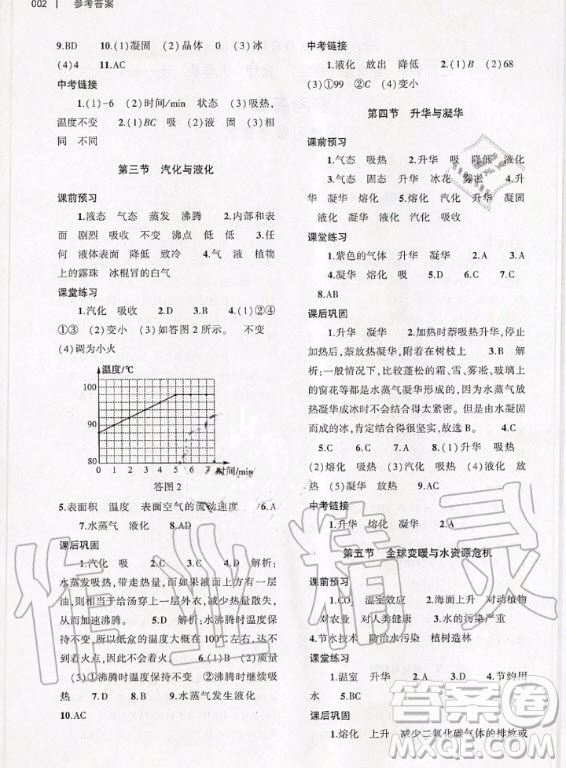 002 | 参考答案
9.BD 10.(1)凝固 (2)晶体 0 (3)冰
(4)4 11.AC
中考链接
1.(1)-6 (2)时间/min 状态 (3)吸热,
温度不变 2.(1)BC 吸 液 固 (3)相
同 不同
第三节 汽化与液化
课前预习
1.液态 气态 蒸发 沸腾 2.内部和表
面 剧烈 吸收 不变 沸点 低 低
3.气态 液体表面 降低 致冷 4.气 液 植物
上的露珠 冰棍冒的白气
课堂练习
1.汽化 吸收 2.D 3.B 4.(1)②④
①③ (2)变小 (3)如答图2所示。 不变
(4)调为小火
温度/℃
100
90
80
0 1 2 3 4 5 6 7 时间/min
答图2
5.表面积 温度 表面空气的流动速度 6.A
7.水蒸气 液化 8.AD
课后巩固
1.汽化 吸 2.D 3.B 4.D 解析:
水蒸发吸热,带走热量,而鸡汤表面有一层油,
相当于给汤穿上一层外衣,减少了热量散失,从
而加速沸腾。 5.C 6.D 7.B 8.D 解
析:所以纸盒的温度最高大约在100℃左右,达
不到纸的着火点。 9.(1)BD (2)质量
(3)①沸腾时温度保持不变 ②沸腾时继续吸
热 ③98 不可靠 (4)水蒸气发生液化
10.AC
中考链接
1.液化 放出 降低 2.(1)B (2)68
(3)①99 ②C (4)变小
第四节 升华与凝华
课前预习
1.气态 吸热 2.升华 吸 降低 液化
3.气态 固态 升华 冰花 雾凇 4.升华
凝华 熔化 汽化 液化 凝固 升华 凝固
液化 凝华 熔化 汽化 吸收
课堂练习
1.紫色的气体 升华 凝华 2.A 3.A
4.升华 凝华 放 吸 5.D 6.C 7.C
8.AB
课后巩固
1.升华 凝华 2.加热时萘吸热升华,停止
加热,萘放热凝华附着在树枝上 3.B 解
析:一般情况下,比较蓬松的霜、雪、雾凇、玻璃上
的窗花等都是由水蒸气凝华形成的,因为水蒸气
凝华成冰时不会结合得太紧密。但由水凝固
而成的冰,内部结合得很坚实,故选B。 4.D
5.C 6.B 7.C 8.(1)液化 放热
(2)熔化 吸热 (3)升华 吸热 (4)凝华
放热 (5)凝华 放热 9.AC
中考链接
1.升华 熔化 凝华 2.A
第五节 全球变暖与水资源危机
课前预习
1.CO₂ 温室效应 2.海面上升 对动植物
对农业 对人类健康 3.水的污染严重
4.节水技术 防治水污染 植树造林
课堂练习
1.温室 升华 2.A 3.D 4.节约用
水 5.BC
课后巩固
1.熔化 上升 减少二氧化碳气体的排放或
作业精灵
答案圈
MXQE.COM